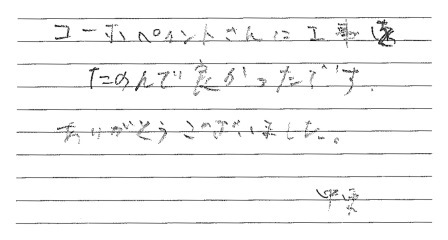 コーホペイントさんに工事を
たのんで良かったです。
ありがとうございました。